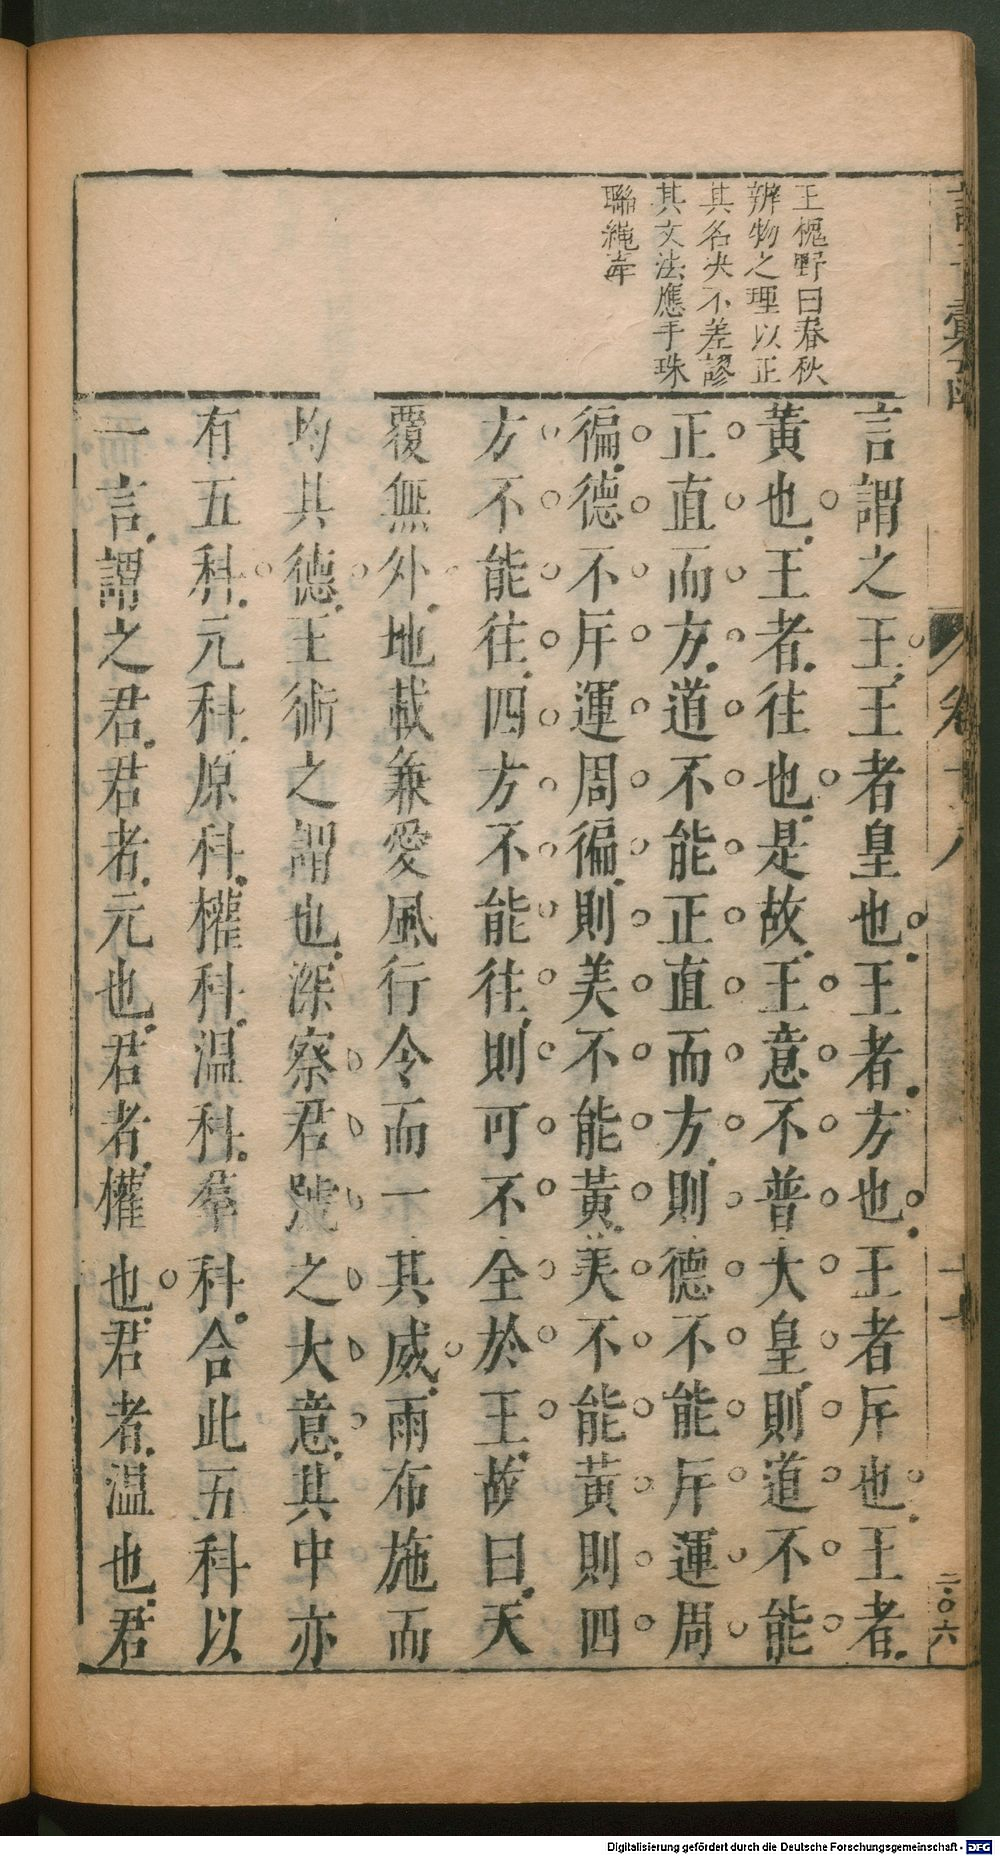 王槐野曰春秋
辨物之理以正
其名決不差謬
其文法應手珠
聯繩牽
言謂之王王者皇也王者方也王者斥也王者
黃也王者往也是故王意不普大皇則道不能
正直而方道不能正直而方則德不能斥運周
徧德不斥運周徧則美不能黃美不能黃則四
方不能往四方不能往則可不全於王故曰天
覆無外地載兼愛風行令而一其威雨布施而
均其德王術之謂也深察君號之大意其中亦
有五科元科原科權科温科羣科合此五科以
一言謂之君君者元也君者權也君者温也君
卷十八
十七
二〇六
Digitalisierung gefördert durch die Deutsche Forschungsgemeinschaft - DFG